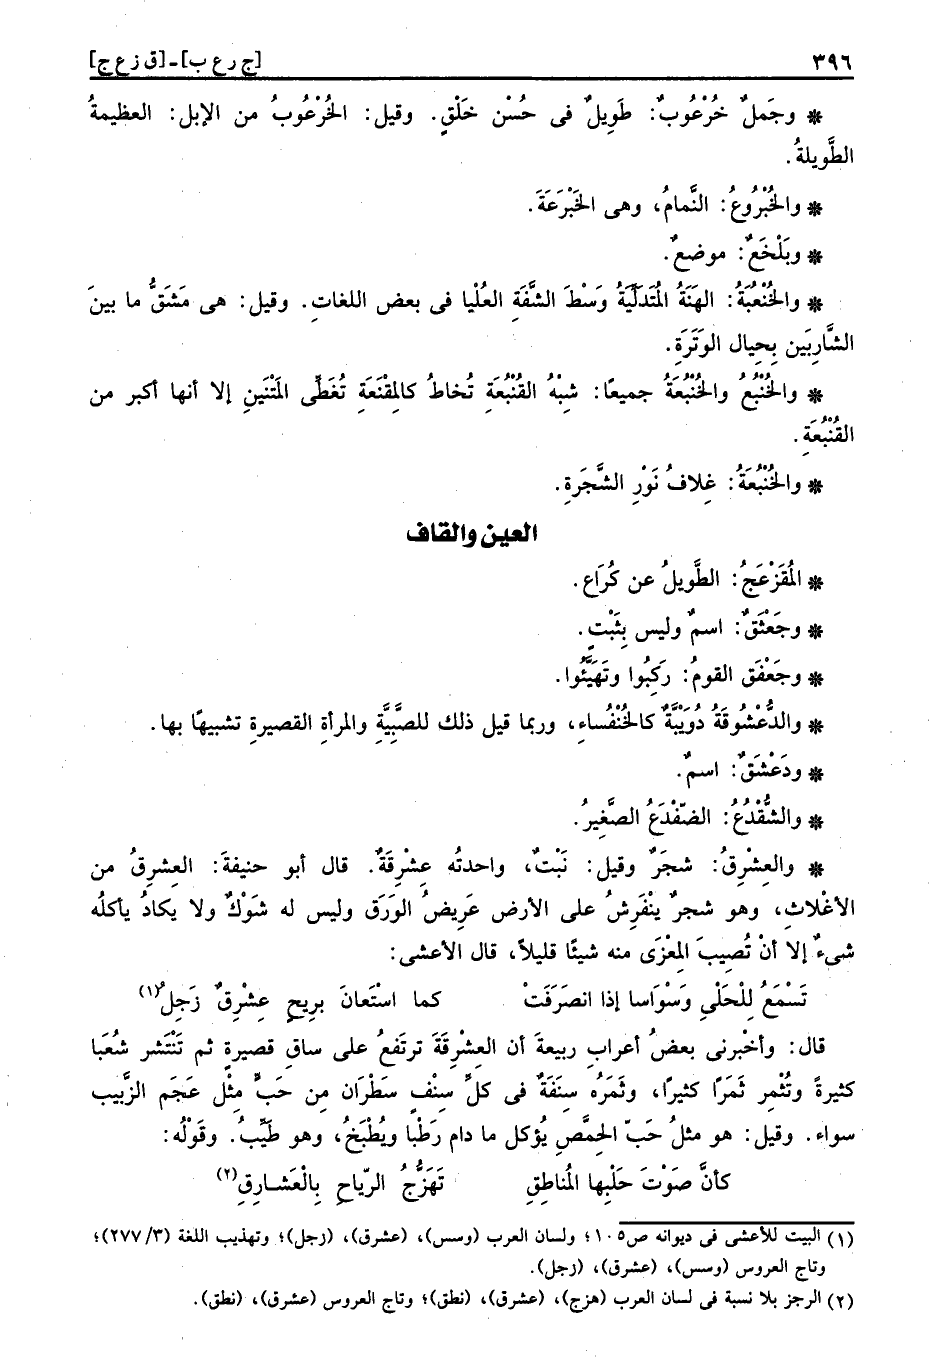 ٣٩٦ [ج ر ع ب] ـ [ق ز ع ج]
* وجَملٌ خُرْعُوبٌ: طَوِيلٌ فى حُسْن خَلْقٍ. وقيل: الخُرْعُوبُ من الإبل: العظيمةُ
الطَّويلةُ.
* والخُبْرُوعُ: النَّمامُ، وهى الخَبْرَعَةَ.
* وبَلْخَعٌ: موضعٌ.
* والخُنْعُبَةُ: الهَنَةُ المُتَدلِّيَةُ وَسْطَ الشَّفَةِ العُلْيا فى بعض اللغاتِ. وقيل: هى مَشَقُّ ما بينَ
الشَّارِبَين بِحِيال الوَتَرَةِ.
* والخُنْبُعُ والخُنْبُعَةُ جميعًا: شِبْهُ القُنْبُعَةِ تُخاطُ كالمِقْنَعَةِ تُغَطِّى المَتْنَينِ إلا أنها أكبر من
القُنْبُعَةِ.
* والخُنْبُعَةُ: غلافُ نَوْرِ الشَّجَرةِ.
العين والقاف
* المُقَزْعَجُ: الطَّويلُ عن كُرَاع.
* وجَعْثَقٌ: اسمٌ وليس بِثَبْتٍ.
* وجَعْفَق القومُ: رَكِبُوا وتَهَيَّئُوا.
* والدُّعْشُوقَةُ دُوَيْبَّةٌ كالخُنْفُساءِ، وربما قيل ذلك للصَّبِيَّةِ والمرأةِ القصيرةِ تشبيهًا بها.
* ودَعْشَقٌ: اسمٌ.
* والشُّقْدُعُ: الضّفْدَعُ الصَّغيرُ.
* والعِشْرِقُ: شجَرٌ وقيل: نَبْتٌ، واحدتُه عِشْرِقَةٌ. قال أبو حنيفةَ: العشرِقُ من
الأغْلاثِ، وهو شجرٌ ينْفَرِشُ على الأرض عَرِيضُ الوَرَق وليس له شَوْكٌ ولا يكادُ يأكلُه
شىءٌ إلا أنْ تُصِيبَ المِعْزَى منه شيئًا قليلاً، قال الأعشى:
تَسْمَعُ لِلْحَلْىِ وَسْوَاسا إذا انصَرَفَتْ كما استَعانَ بريحٍ عِشْرِقٌ زَجِلُ(١)
قال: وأخْبرنى بعضُ أعرابِ ربيعةَ أن العشرِقَةَ ترتَفعُ على ساقٍ قصيرةٍ ثم تَنْتَشر شُعَبا
كثيرةً وتُثْمِر ثَمَرًا كثيرًا، وثَمَرُه سنَفَةٌ فى كلِّ سنْفٍ سَطْرَان مِن حَبٍّ مِثْل عَجَم الزَّبيب
سواء. وقيل: هو مثلُ حَبّ الحِمَّصِ يُؤكل ما دام رَطْبا ويُطْبَخُ، وهو طَيِّبٌ. وقَوْلُه:
كأنَّ صَوْتَ حَلْيِها المُناطِقِ تَهَزُّجُ الرّياحِ بِالْعَشارِقِ(٢)
(١) البيت للأعشى فى ديوانه ص١٠٥؛ ولسان العرب (وسس)، (عشرق)، (زجل)؛ وتهذيب اللغة (٣/ ٢٧٧)؛
وتاج العروس (وسس)، (عشرق)، (زجل).
(٢) الرجز بلا نسبة فى لسان العرب (هزج)، (عشرق)، (نطق)؛ وتاج العروس (عشرق)، (نطق).